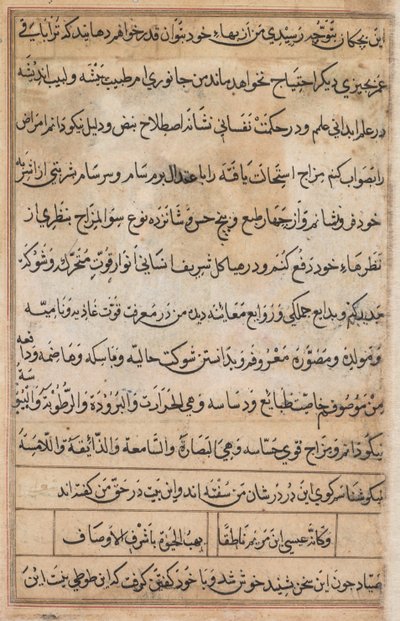 این بچکان بتو چه رسیدی من از بهاء خود بتوان قدر خواهم دهانید که ترا باب فی
عمر بچیزی دیگر احتیاج نخواهد ماند من جانوری ام طبیب پیشه و لبیب اندیشه
در علم ابدانی علم و در حکمت نفسانی نشانه اصطلاح نبض و دلیل نیکو دانم امراض
را بصواب کنم مزاج استحالت یافته را باعتدال برم سام و سرسام شربتی از اشربه
خود فرو نشانم و از چهار طبع و پنج حس و شانزده نوع سوء المزاج بنظری از
نظرهاء خود رفع کنم و در هیاکل شریف انسانی انوار قوت محرک و شوکت
مدرکه و بدایع جملگی و روایع معاینه دیده من در معرفت قوت غاذیه و نامیه
و مولده و مصوره معروفم و بدانستن شوکت جالبه و ماسکه و هاضمه و دافعه
من موصوفم خاصیت طبایع و رساسه وهی الحرارت و البرودة و الرطوبة و الیبوسة
نیکو دانم و مزاج قوی حساسه وهی الباصرة و السامعة و الذائقة و اللامسة
نیکو شناسم گوی این در در شان من سفته اند و این بیت در حق من گفته اند
وکانه عیسی ابن مریم ناطقا یهب الحیوة باشرف الاوصاف
صیاد چون این سخن شنید خوش شد و با خود گفتن گرفت که این طوطی نیت این